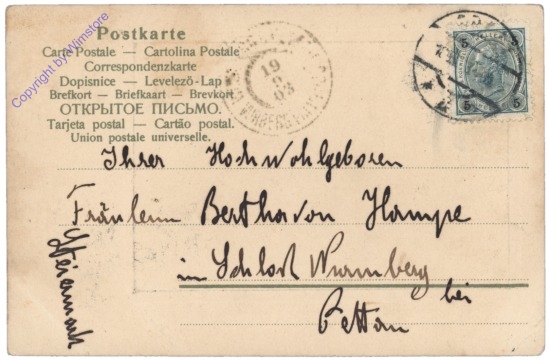 Postkarte
Carte Postale — Cartolina Postale
Correspondenzkarte
Dopisnice — Levelező-Lap
Brefkort — Briefkaart — Brevkort
ОТКРЫТОЕ ПИСЬМО.
Tarjeta postal — Cartão postal.
Union postale universelle.
Copyright by Wimstore
19
03
5 5
5 5
Ihrer Hochwohlgeboren
Fräulein Bertha von Hampe
in Schloß Wurmberg
bei
Pettau
Steiermark